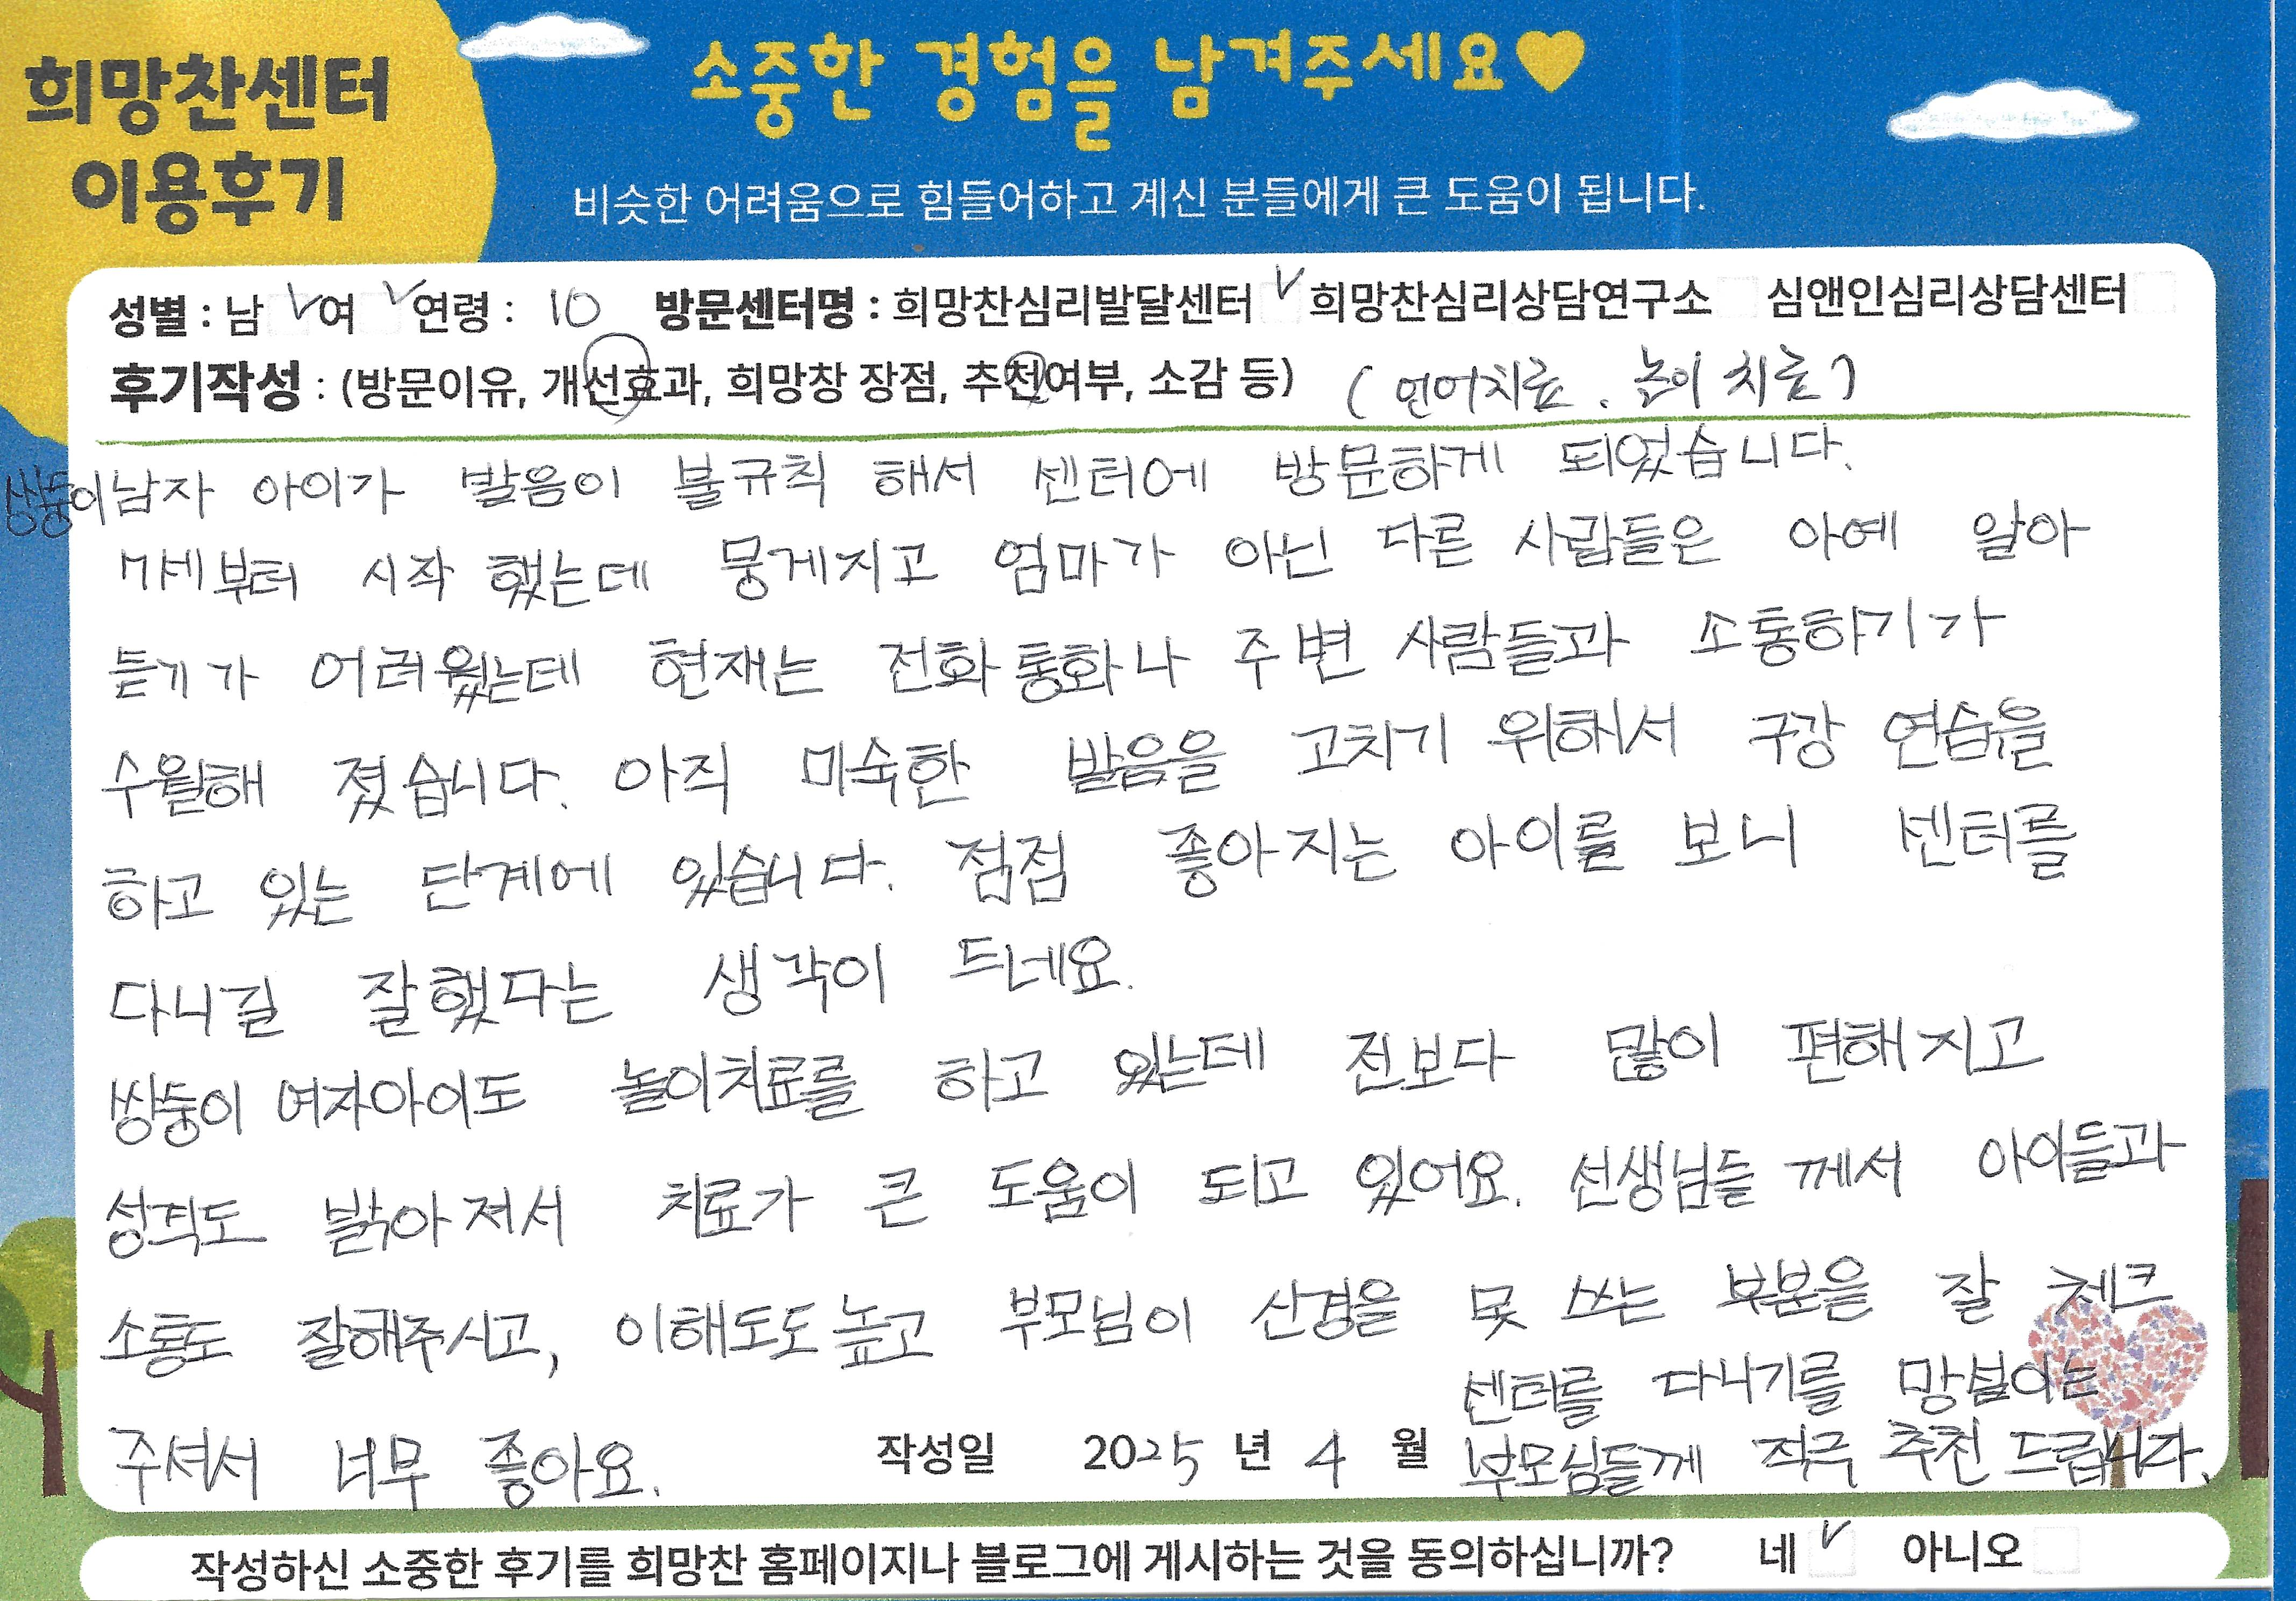 희망찬센터
이용후기
소중한 경험을 남겨주세요♥
비슷한 어려움으로 힘들어하고 계신 분들에게 큰 도움이 됩니다.
성별 : 남 ✓ 여 ✓ 연령 : 10 방문센터명 : 희망찬심리발달센터 ✓ 희망찬심리상담연구소 심앤인심리상담센터
후기작성 : (방문이유, 개선효과, 희망창 장점, 추천여부, 소감 등) (언어치료. 놀이 치료)
쌍둥이남자 아이가 발음이 불규칙 해서 센터에 방문하게 되었습니다.
7세부터 시작 했는데 뭉게지고 엄마가 아닌 다른 사람들은 아예 알아
듣기가 어려웠는데 현재는 전화통화나 주변 사람들과 소통하기가
수월해 졌습니다. 아직 미숙한 발음을 고치기 위해서 구강 연습을
하고 있는 단계에 있습니다. 점점 좋아지는 아이를 보니 센터를
다니길 잘했다는 생각이 드네요.
쌍둥이 여자아이도 놀이치료를 하고 있는데 전보다 많이 편해지고
성격도 밝아져서 치료가 큰 도움이 되고 있어요. 선생님들께서 아이들과
소통도 잘해주시고, 이해도도 높고 부모님이 신경을 못 쓰는 부분을 잘 체크
주셔서 너무 좋아요.
센터를 다니기를 망설이는
부모님들께 적극 추천 드립니다.
작성일 2025 년 4 월
작성하신 소중한 후기를 희망찬 홈페이지나 블로그에 게시하는 것을 동의하십니까? 네 ✓ 아니오